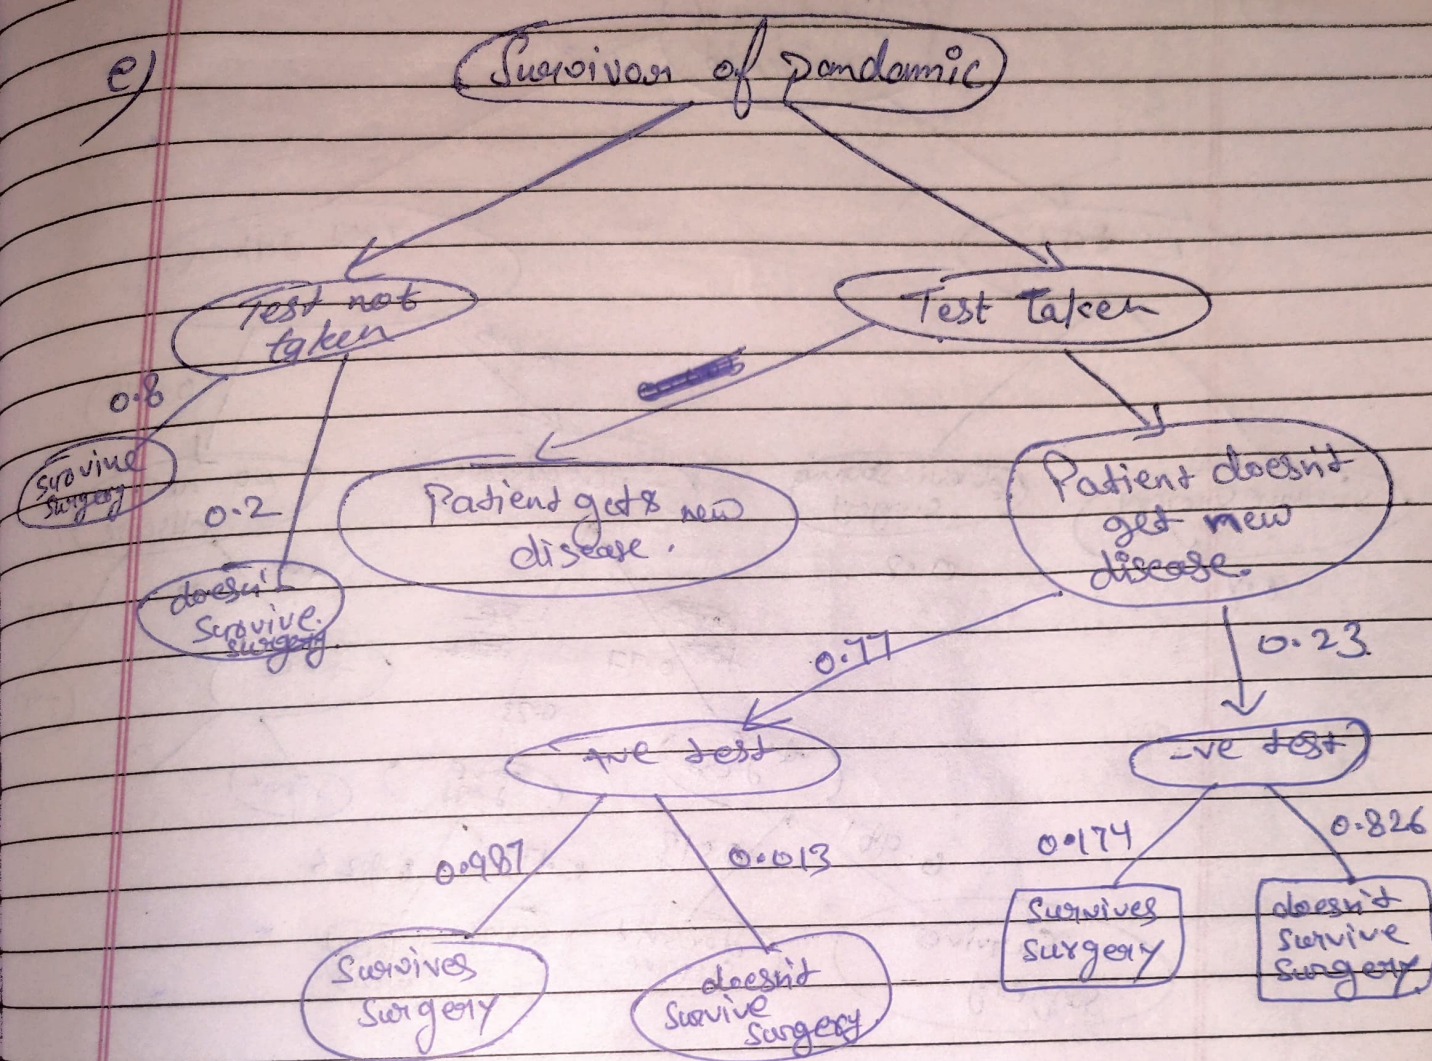 e)
Survivor of pandamic
Test not
taken
Test Taken
0.8
0.2
survine
surgery
doesn't
survive.
surgery.
Patient gets new
disease.
Patient doesn't
get new
disease.
0.77
0.23
+ve test
-ve test
0.987
0.013
0.174
0.826
Survives
Surgery
doesn't
survive
surgery.
Survives
surgery
doesn't
survive
surgery.